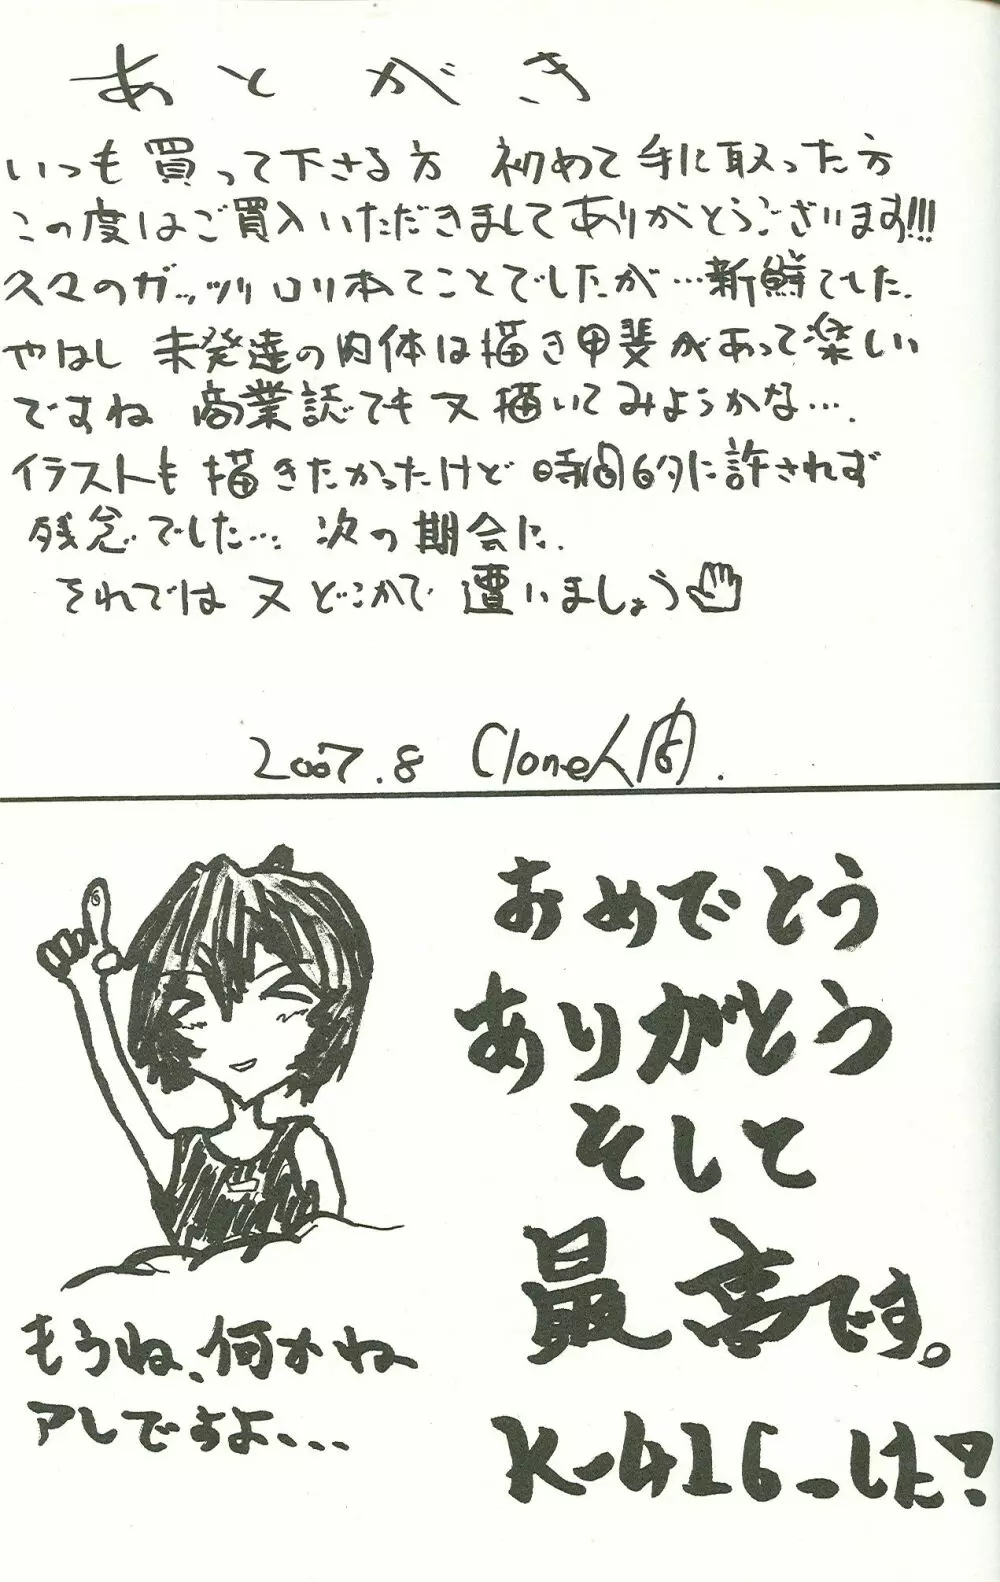 あとがき
いつも買って下さる方 初めて手に取った方
この度はご買入いただきましてありがとうございます!!!
久々のガッツリロリ本てことでしたが…新鮮でした.
やはし 未発達の肉体は描き甲斐があって楽しい
ですね 商業誌でも又描いてみようかな….
イラストも描きたかったけど時間的に許されず
残念でした… 次の期会に.
それでは又どこかで遭いましょう
2007.8 Clone人間.
おめでとう
ありがとう
そして
最高です。
もうね、何かね
アレですよ、、、
K-416